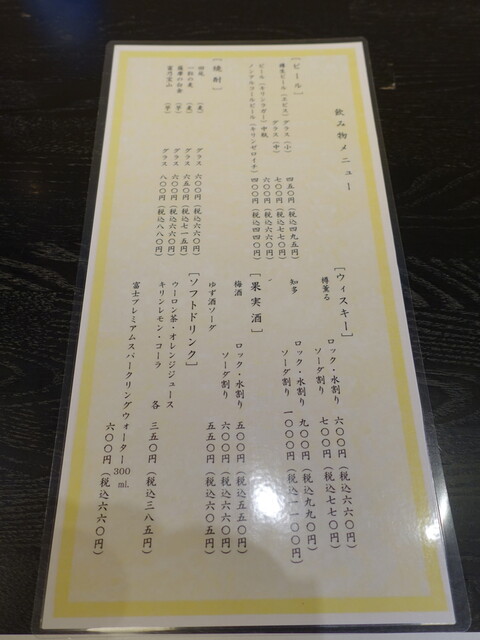 飲み物メニュー
［ビール］
樽生ビール（ヱビス）グラス（小） 四五〇円（税込四九五円）
グラス（中） 七〇〇円（税込七七〇円）
ビール（キリンラガー）中瓶 六〇〇円（税込六六〇円）
ノンアルコールビール（キリンゼロイチ） 四〇〇円（税込四四〇円）
［焼酎］
（麦） グラス 六〇〇円（税込六六〇円）
一粒の麦（麦） グラス 六五〇円（税込七一五円）
薩摩の白金（芋） グラス 六〇〇円（税込六六〇円）
富乃宝山（芋） グラス 八〇〇円（税込八八〇円）
［ウィスキー］
樽薫る ロック・水割り 六〇〇円（税込六六〇円）
ソーダ割り 七〇〇円（税込七七〇円）
知多 ロック・水割り 九〇〇円（税込九九〇円）
ソーダ割り 一〇〇〇円（税込一一〇〇円）
［果実酒］
梅酒 ロック・水割り 五〇〇円（税込五五〇円）
ソーダ割り 六〇〇円（税込六六〇円）
ゆず酒ソーダ 五五〇円（税込六〇五円）
［ソフトドリンク］
ウーロン茶・オレンジジュース
キリンレモン・コーラ 各 三五〇円（税込三八五円）
富士プレミアムスパークリングウォーター 300ml
六〇〇円（税込六六〇円）